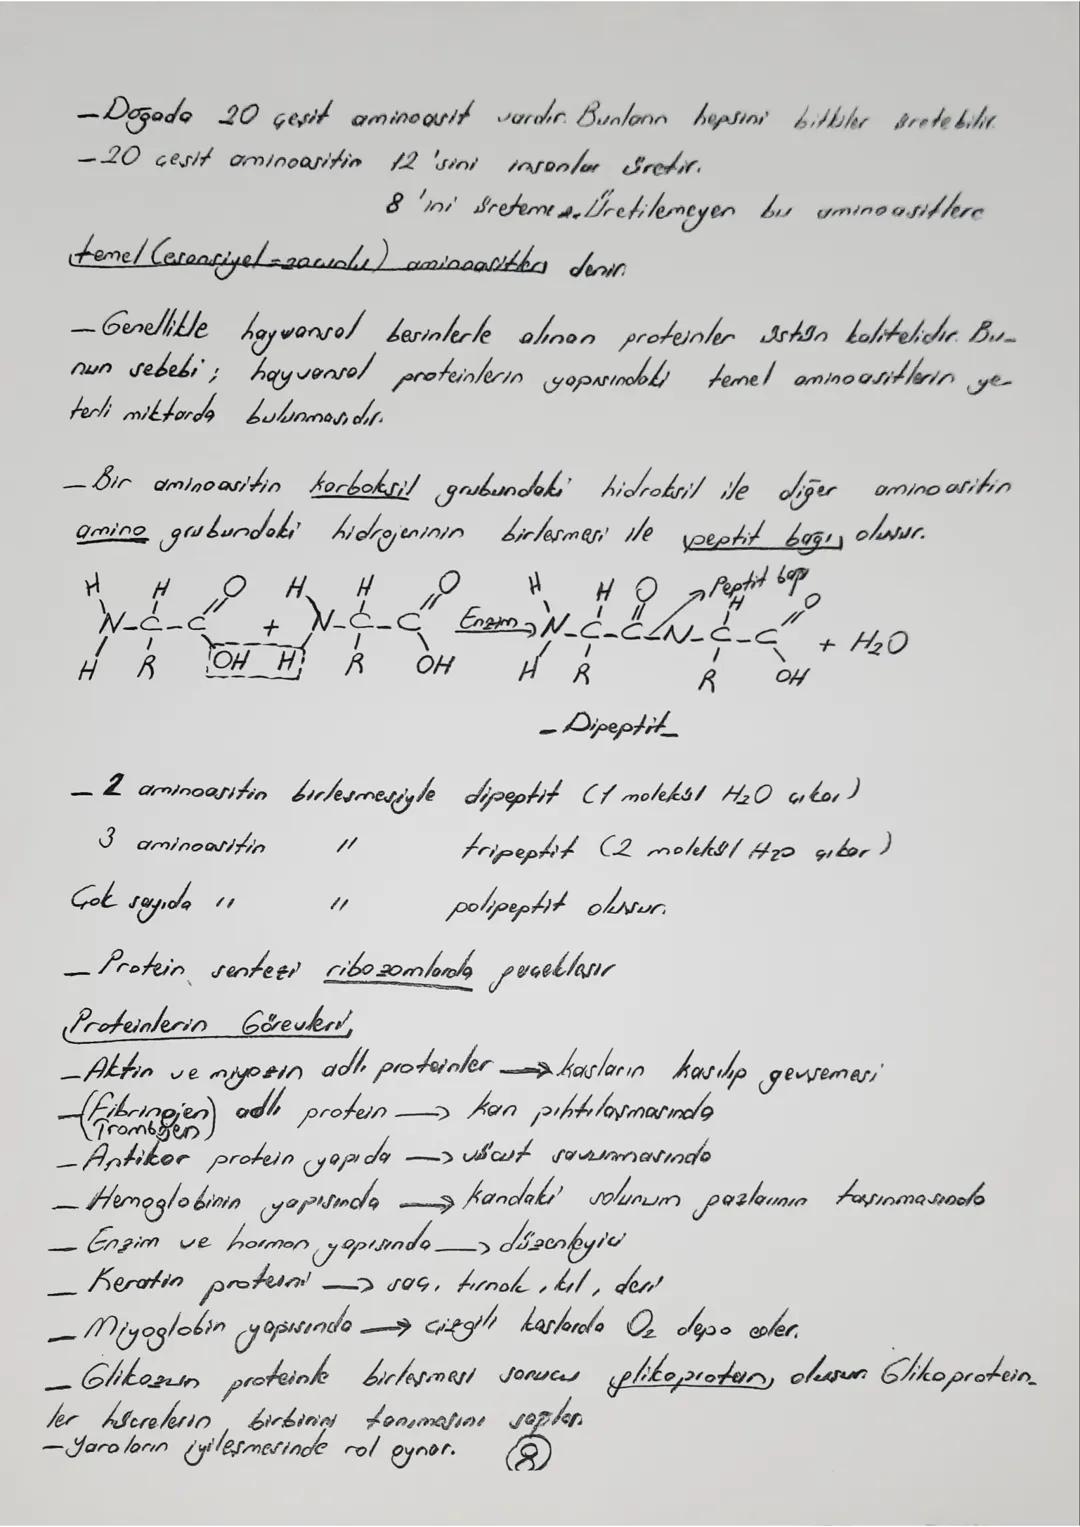 - Doğada 20 çeşit aminoasit vardır. Bunların hepsini bitkiler üretebilir.
- 20 çeşit aminoasitin 12'sini insanlar üretir.
8'ini üretemez. Üretilemeyen bu aminoasitlere
temel (esansiyel = zorunlu) aminoasitler denir.
- Genellikle hayvansal besinlerle alınan proteinler üstün kalitelidir. Bu-
nun sebebi; hayvansal proteinlerin yapısındaki temel aminoasitlerin ye-
terli miktarda bulunmasıdır.
- Bir aminoasitin karboksil grubundaki hidroksil ile diğer aminoasitin
amino grubundaki hidrojeninin birleşmesi ile peptit bağı oluşur.
H H O H H O H H O Peptit bağı H O
N-C-C + N-C-C Enzim → N-C-C-N-C-C + H2O
H R OH H R OH H R R OH
- Dipeptit -
- 2 aminoasitin birleşmesiyle dipeptit (1 molekül H2O çıkar)
3 aminoasitin " tripeptit (2 molekül H2O çıkar)
Çok sayıda " " polipeptit oluşur.
- Protein sentezi ribozomlarda gerçekleşir
Proteinlerin Görevleri
- Aktin ve miyozin adlı proteinler → kasların kasılıp gevşemesi
- (Fibrinojen) adlı protein → kan pıhtılaşmasında
(Trombojen)
- Antikor protein yapıda → vücut savunmasında
- Hemoglobinin yapısında → kandaki solunum gazlarının taşınmasında
- Enzim ve hormon yapısında → düzenleyici
- Keratin proteini → saç, tırnak, kıl, deri
- Miyoglobin yapısında → çizgili kaslarda O2 depo eder.
- Glikozun proteinle birleşmesi sonucu glikoprotein oluşur. Glikoprotein-
ler hücrelerin birbirini tanımasını sağlar.
- Yaraların iyileşmesinde rol oynar. 8